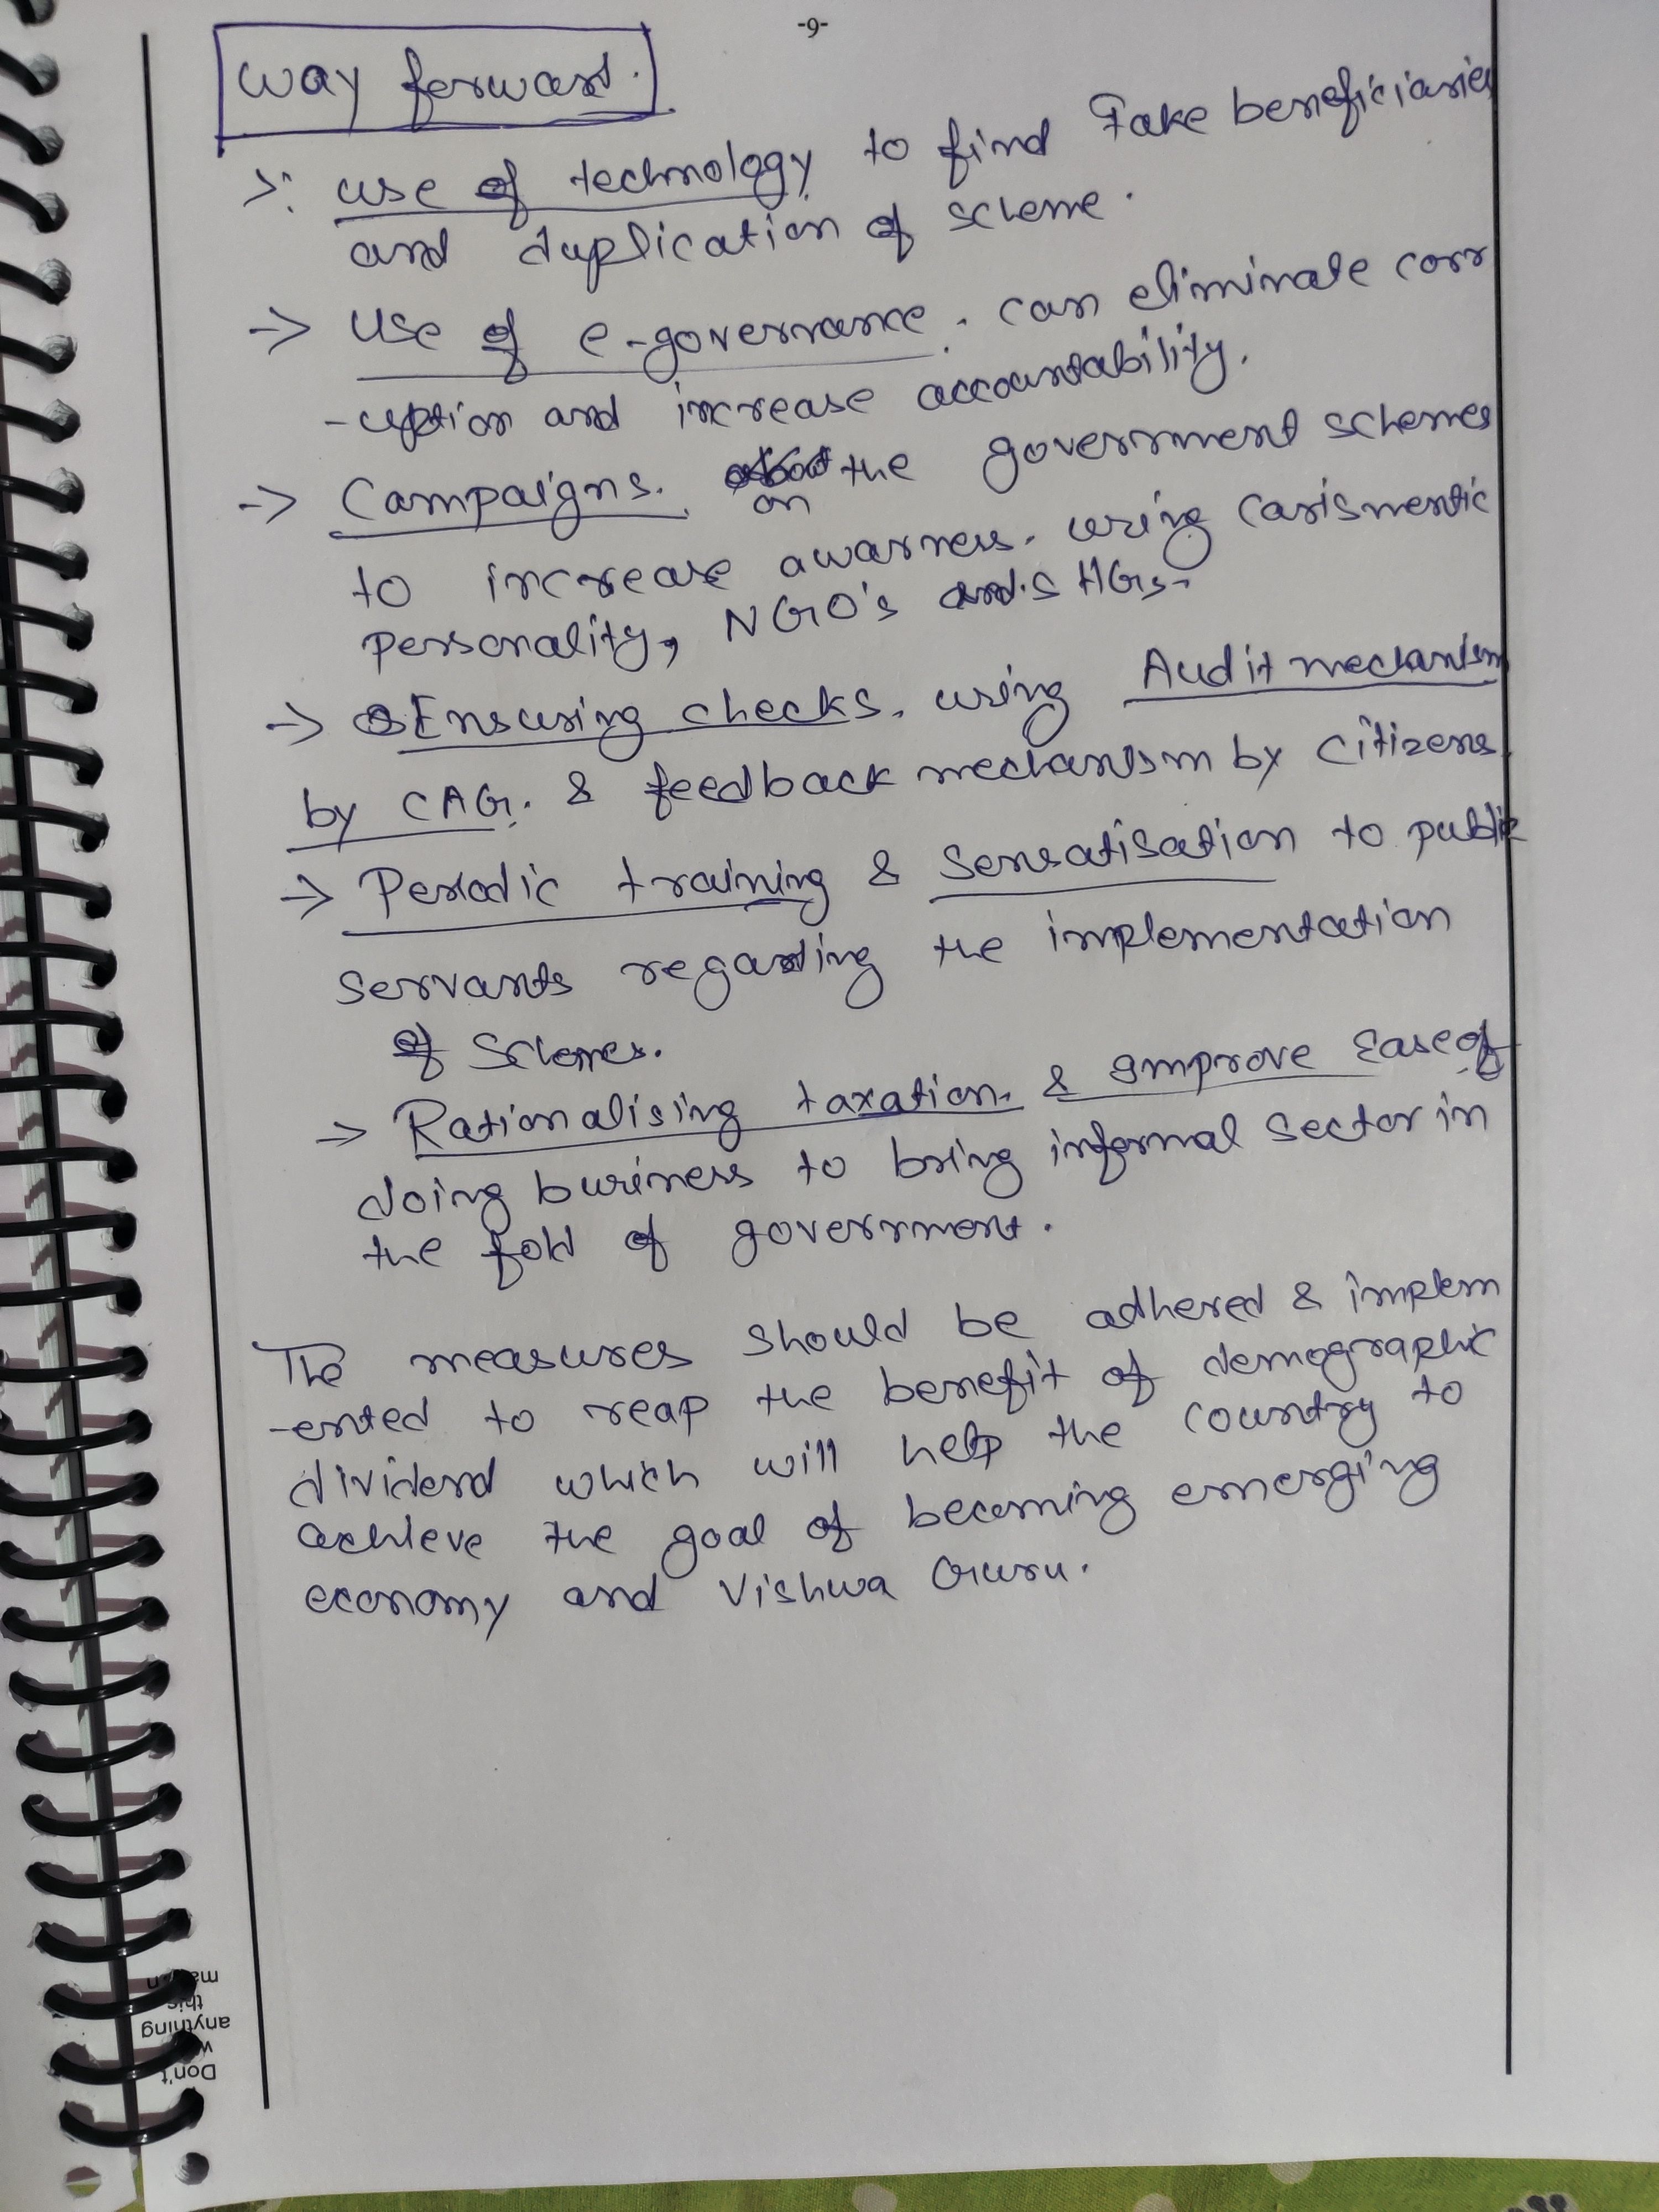 -9-
way forward.
→ use of technology to find Fake beneficiaries
and duplication of scheme.
→ Use of e-governance. can eliminate corr
-uption and increase accountability.
→ Campaigns. on the government schemes
to increase awarness. using carismentic
personality, NGO's and SHGs.
→ Ensuring checks. using Audit mechanism
by CAG. & feedback mechanism by citizens.
→ Periodic training & sensatisation to public
servants regarding the implementation
of Schemes.
→ Rationalising taxation. & Improve Ease of
doing business to bring informal sector in
the fold of government.
The measures should be adhered & implem
-ented to reap the benefit of demographic
dividend which will help the country to
achieve the goal of becoming emerging
economy and Vishwa Guru.
Don't
anything
this